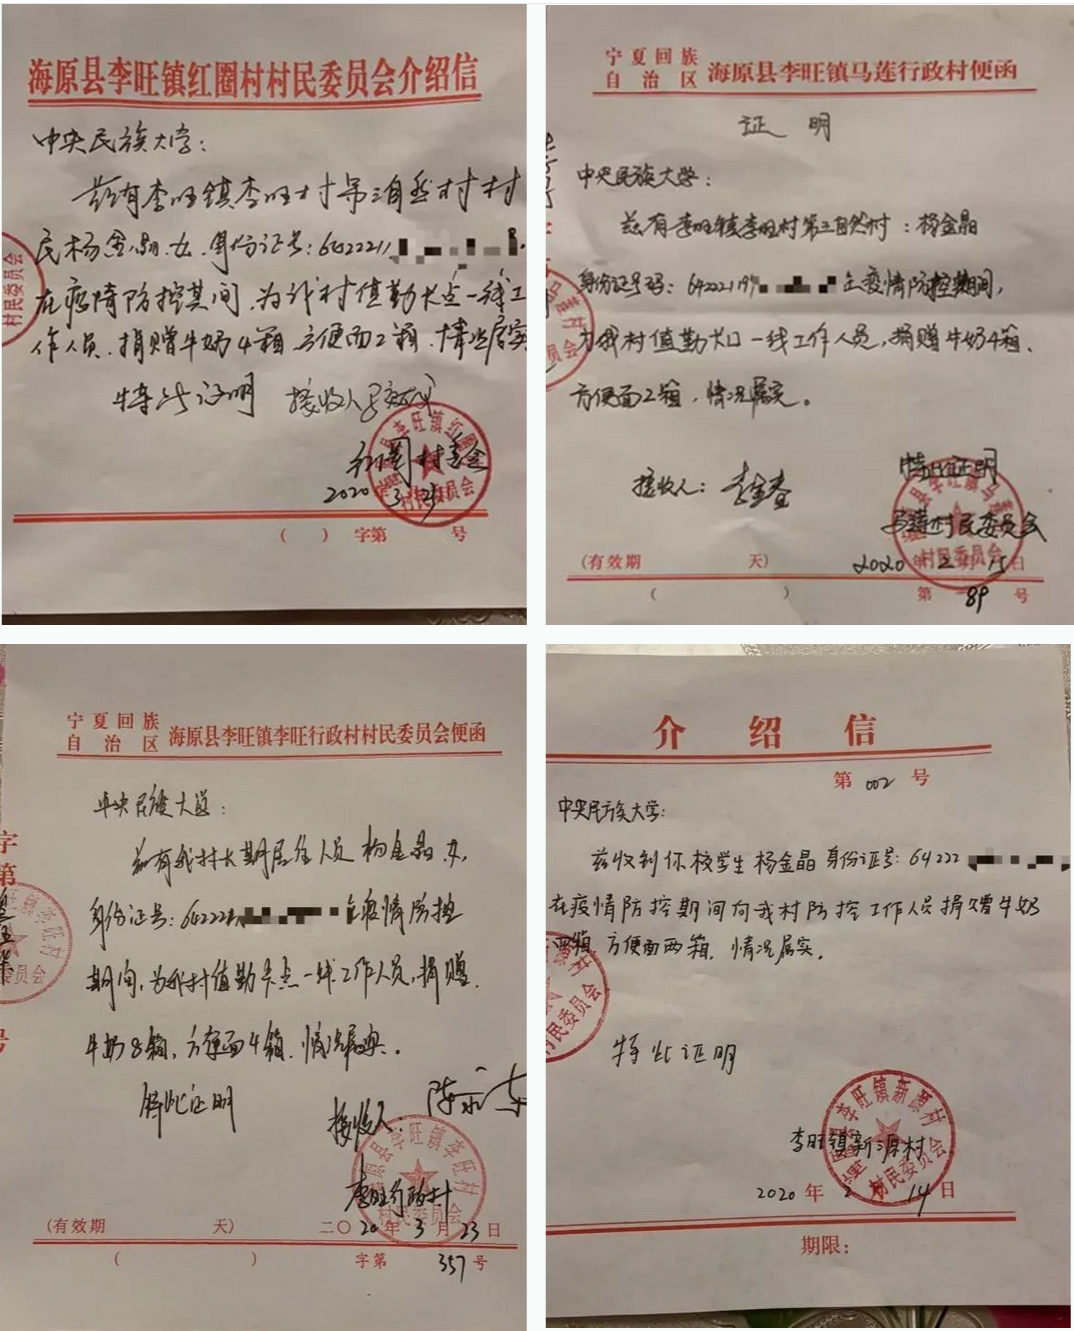 海原县李旺镇红圈村村民委员会介绍信
中央民族大学：
兹有李旺镇李旺村第三自然村村
民杨金晶.女.身份证号：6422211
在疫情防控其间.为我村值勤卡点一线工
作人员.捐赠牛奶4箱.方便面2箱.情况属实
特此证明 接收人
红圈村委会
2020 3 21
村民委员会
( ) 字第 号
宁夏回族
自治区 海原县李旺镇马莲行政村便函
证 明
中央民族大学：
兹有李旺镇李旺村第三自然村：杨金晶
身份证号码：64222119 在疫情防控期间，
为我村值勤卡口一线工作人员，捐赠牛奶4箱、
方便面2箱，情况属实。
特此证明
接收人：
马莲村民委员会
村民委员会
(有效期 天) 2020年2月15日
( ) 第 89 号
宁夏回族
自治区 海原县李旺镇李旺行政村村民委员会便函
中央民族大学：
兹有我村长期居住人员杨金晶.女，
身份证号：642222 在疫情防控
期间，为我村值勤卡点一线工作人员，捐赠
牛奶8箱，方便面4箱.情况属实。
特此证明
接收人：
李旺行政村
村民委员会
(有效期 天) 二〇20年3月23日
( ) 字第 357 号
介 绍 信
第 002 号
中央民族大学：
兹收到你校学生杨金晶身份证号：64222
在疫情防控期间向我村防控工作人员捐赠牛奶
四箱.方便面两箱.情况属实。
特此证明
李旺镇新源村
村民委员会
2020年2月14日
期限：